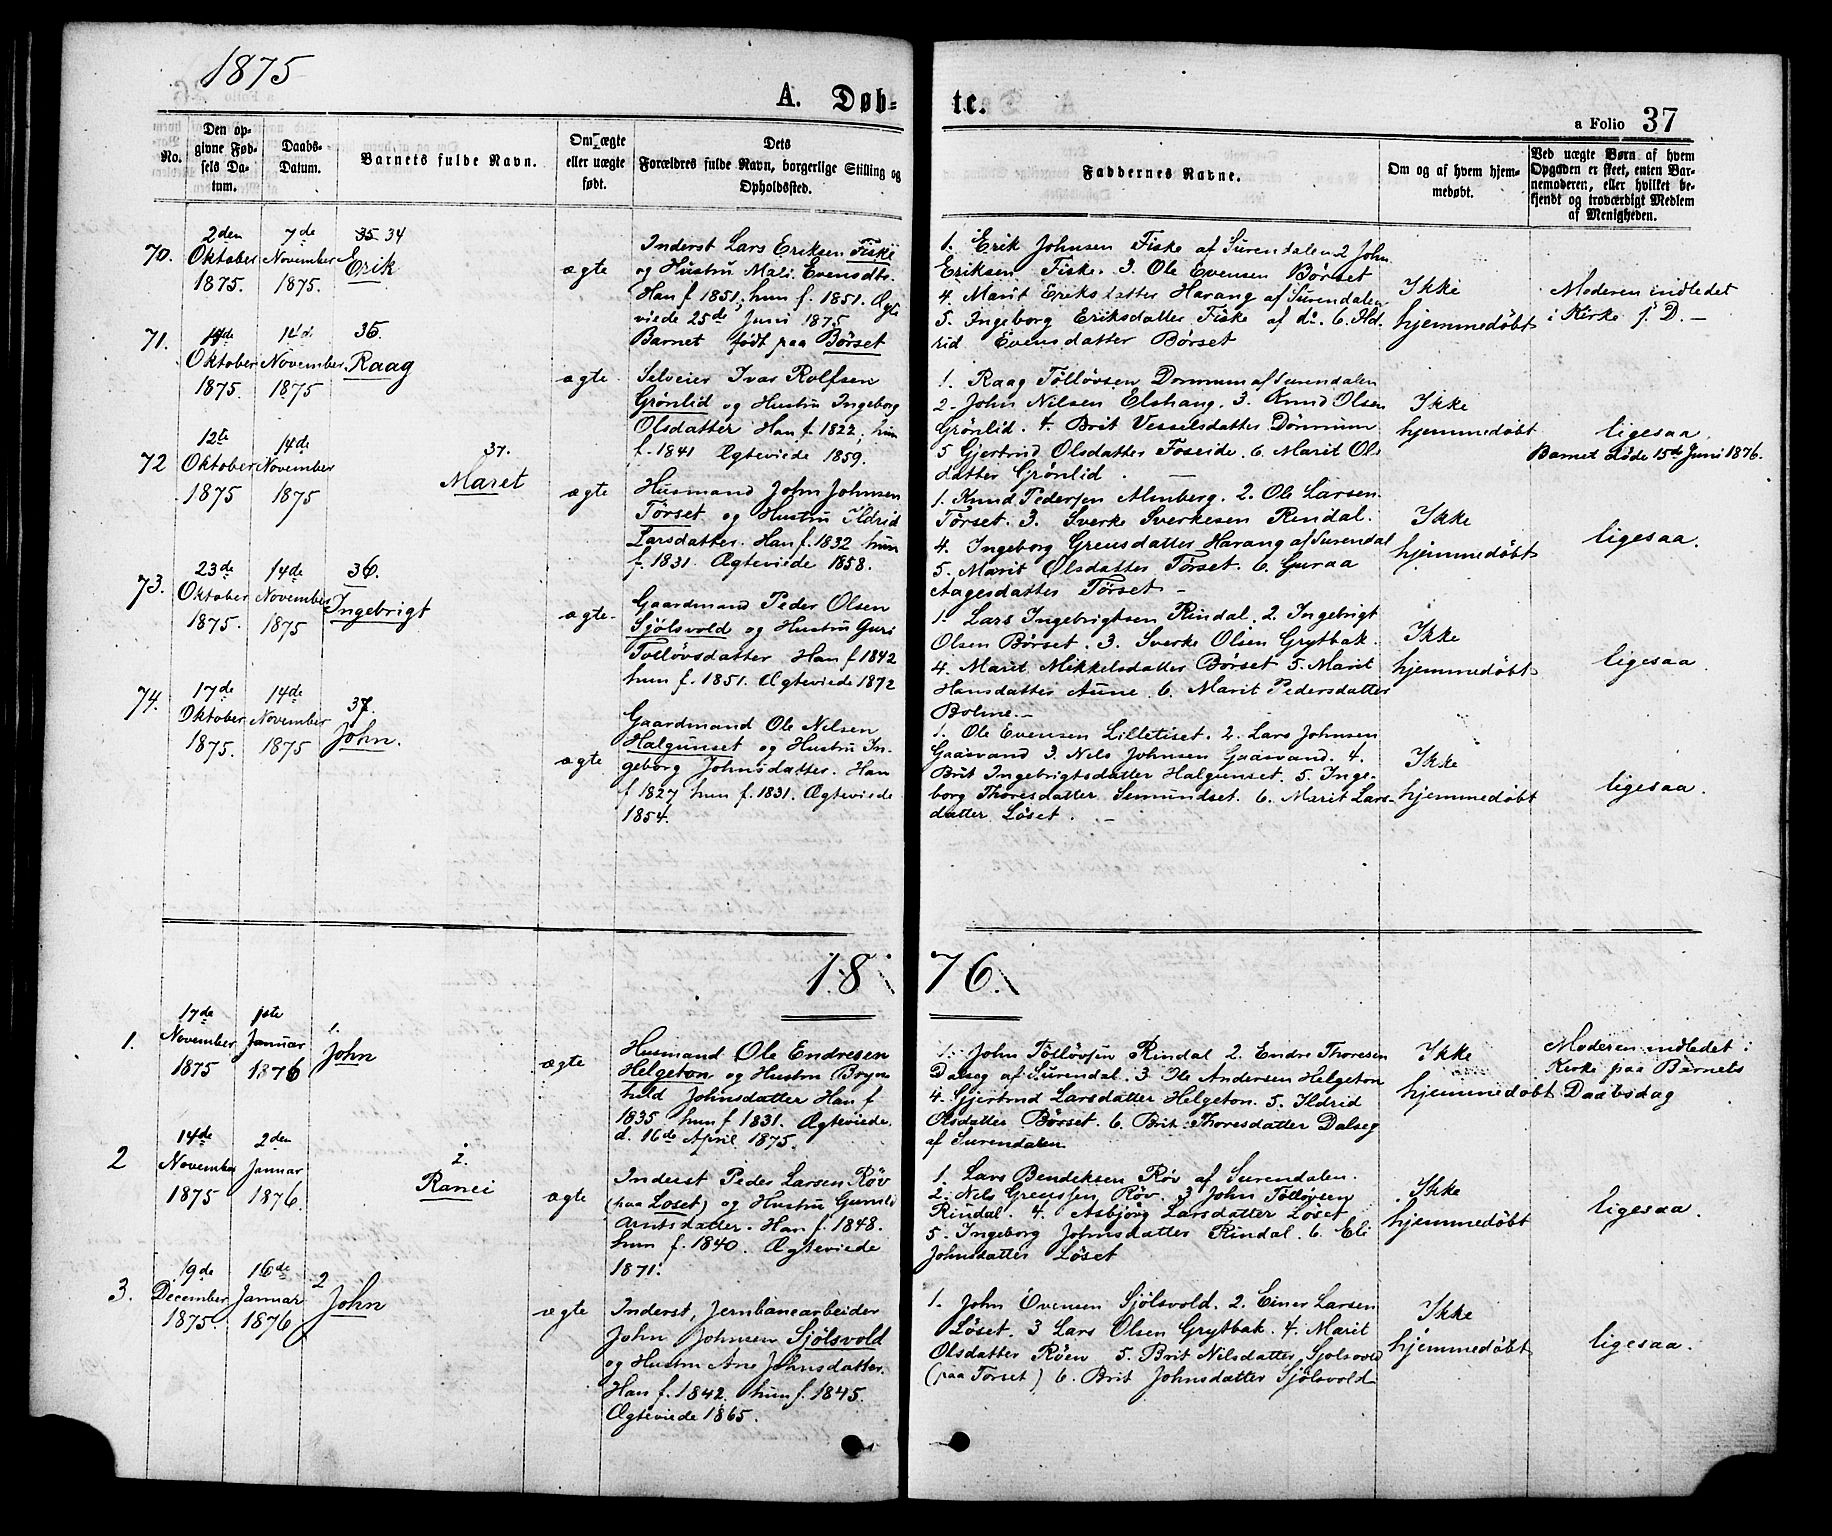 1875
A. Døb-
te.
a Folio 37
No.
Den op-
givne Fød-
sels Da-
tum.
Daabs-
Datum.
Barnets fulde Navn.
Om ægte
eller uægte
født.
Dets
Forældres fulde Navn, borgerlige Stilling og
Opholdssted.
Faddernes Navne.
Om og af hvem hjem-
medøbt.
Ved uægte Børn af hvem
Opgaven er skeet, enten Bar-
nemoderen, eller hvilket be-
kjendt og troværdigt Medlem
af Menigheden.
70.
2den
Oktober
1875.
7de
November
1875.
35 34
Erik
ægte
Inderst Lars Eriksen Fiske
og Hustru Mali Evensdtr.
Han f 1851, hun f. 1851. Ægte
viede 25de Juni 1875
Barnet født paa Børset
1. Erik Johnsen Fiske af Surendalen 2 John
Eriksen Fiske. 3. Ole Evensen Børset
4. Marit Eriksdatter Harang af Surendalen
5. Ingeborg Eriksdatter Fiske af do. 6. Ild-
rid Evensdatter Børset
Ikke
hjemmedøbt
Moderen indledet
i Kirke f. D. —
71.
Oktober
1875.
14de
November.
1875
35.
Raag
ægte.
Selveier Ivar Rolfsen
Grønlid og Hustru Ingeborg
Olsdatter Han f. 1822, hun
f. 1841 Ægteviede 1859.
1. Raag Tølløvsen Dønnum af Surendalen
2. John Nilsen Elshaug. 3. Knud Olsen
Grønlid. 4. Brit Vesselsdatter Dønnum
5 Gjertrud Olsdatter Foseide. 6. Marit Ols
datter Grønlid
Ikke
hjemmedøbt
ligesaa.
Barnet døde 15de Juni 1876.
72
12te
Oktober
1875
14de
November
1875
37.
Maret
ægte
Husmand John Johnsen
Tørset og Hustru Ildrid
Larsdatter. Han f. 1832 hun
f. 1831. Ægteviede 1858.
1. Knud Pedersen Almberg. 2. Ole Larsen
Tørset. 3. Sverke Sverkesen Rindal.
4. Ingeborg Greusdatter Harang af Surendal
5. Marit Olsdatter Tørset. 6. Guraa
Aagesdatter Tørset —
Ikke
hjemmedøbt
ligesaa.
73.
23de
Oktober
1875.
14de
November
1875
36.
Ingebrigt
ægte.
Gaardmand Peder Olsen
Sjølsvold og Hustru Guri
Tølløvsdatter Han f 1842
hun f. 1851. Ægteviede 1872
1. Lars Ingebrigtsen Rindal. 2. Ingebrigt
Olsen Børset. 3. Sverke Olsen Grytbak.
4. Marit Mikkelsdatter Børset 5. Marit
Hansdatter Aune. 6. Marit Pedersdatter
Bolme. —
Ikke
hjemmedøbt
ligesaa.
74.
17de
Oktober
1875.
14de
November
1875
37.
John.
ægte
Gaardmand Ole Nilsen
Halgunset og Hustru In-
geborg Johnsdatter. Han
f 1827 hun f. 1831. Ægteviede
1854.
1. Ole Evensen Lilletiset. 2. Lars Johnsen
Gaasvand 3. Nils Johnsen Gaasvand. 4.
Brit Ingebrigtsdatter Halgunset. 5. Inge-
borg Thoresdatter Semundset. 6. Marit Lars-
datter Løset. —
Ikke
hjemmedøbt
ligesaa.
1876.
1.
17de
November
1875
1ste
Januar
1876
1.
John
ægte
Husmand Ole Endresen
Helgeton og Hustru Bryn
hild Johnsdatter Han f
1835 hun f 1831. Ægteviede.
d. 16de April 1875.
1. John Tølløvsen Rindal 2. Endre Thoresen
Dalseg af Surendal. 3. Ole Andersen Helgeton
4. Gjertrud Larsdatter Helgeton. 5. Ildrid
Olsdatter Børset. 6. Brit Thoresdatter Dalseg
af Surendalen
Ikke
hjemmedøbt
Moderen indledet i
Kirke paa Barnets
Daabsdag
2
14de
November
1875
2den
Januar
1876.
2.
Ranei
ægte
Inderst Peder Larsen Røv
(paa Løset) og Hustru Gunild
Arntsdatter. Han f. 1848.
hun f. 1840. Ægteviede
1871.
1. Lars Bendiksen Røv af Surendalen.
2. Nils Greussen Røv. 3 John Tølløvsen
Rindal. 4. Asbjørg Larsdatter Løset
5. Ingeborg Johnsdatter Rindal. 6. Eli
Johnsdatter Løset
Ikke
hjemmedøbt
ligesaa.
3.
19de
December
1875.
16de
Januar
1876
2
John
ægte
Inderst, Jernbanearbeider
John Johnsen Sjølsvold
og Hustru Ane Johnsdatter.
Han f. 1842 hun f. 1845.
Ægteviede 1865.
1. John Evensen Sjølsvold. 2. Einer Larsen
Løset. 3 Lars Olsen Grytbak. 4. Marit
Olsdatter Røen 5. Brit Nilsdatter Sjølsvold
(paa Tørset) 6. Brit Johnsdatter Sjølsvold
Ikke
hjemmedøbt
ligesaa.